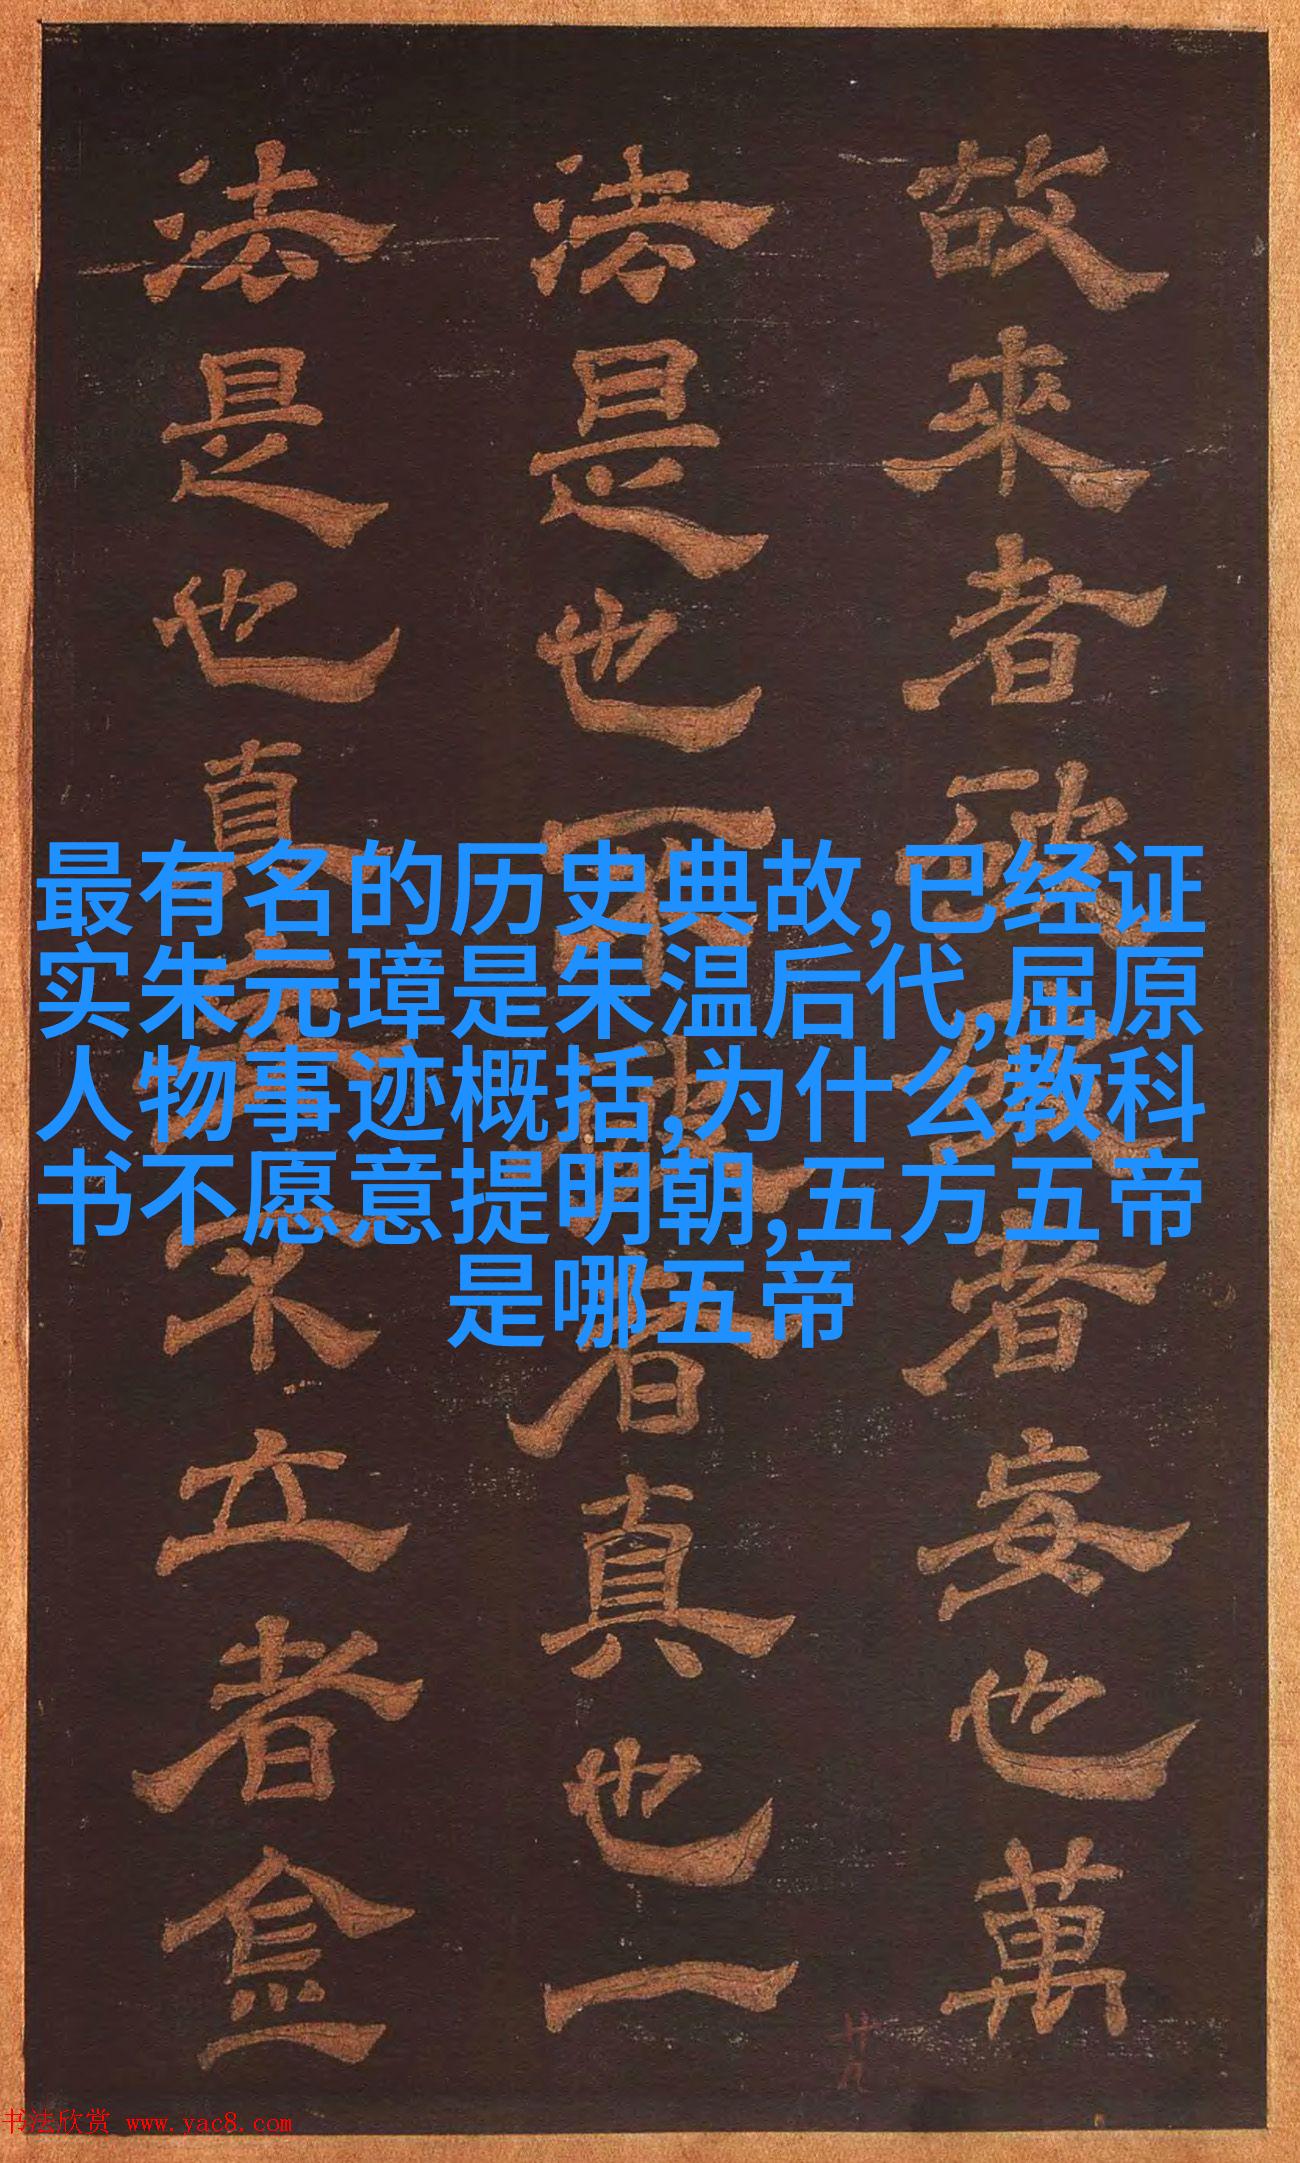 最有名的历史典故,已经证
实朱元璋是朱温后代,屈原
人物事迹概括,为什么教科
书不愿意提明朝,五方五帝
是哪五帝
故來者破者妄也萬
法是也不者真也一
法是也真不立者
廿九
书法欣赏 www.yac8.com